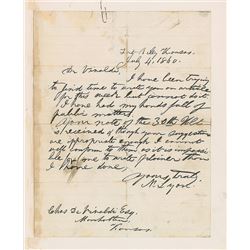 Fort Riley, Kansas.
July 4, 1860.
Dr Vinalde, I have been trying
to find time to write you an article
for this week but cannot do it
I have had my hands full of
public matters.
Your note of the 30th Ult
is received & though your suggestions
are appropriate enough I cannot
well conform to them as it is impossi-
ble for me to write plainer than
I have done,
Yours truly
N. Lyon.
Chas De Vinalde Esq.
Manhattan,
Kansas.